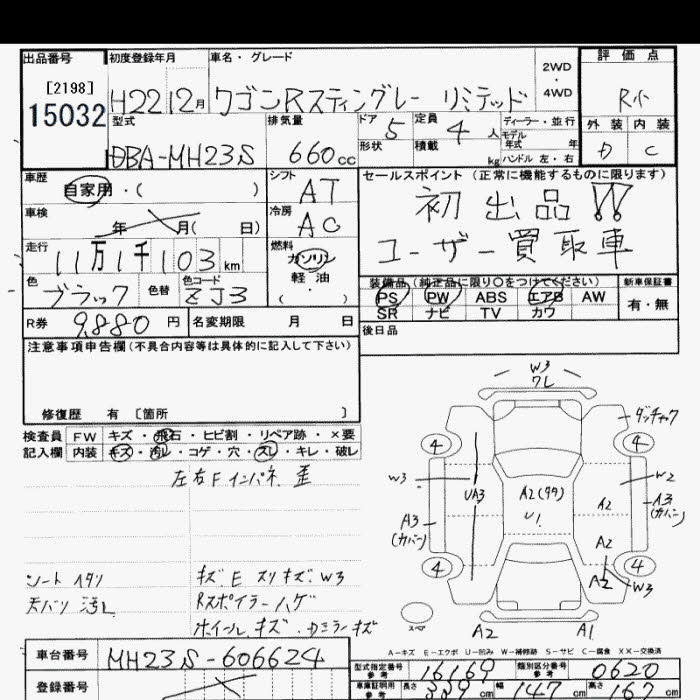 出品番号 初度登録年月 車名・グレード 評価点
[2198]
15032 H22 12月 ワゴンRスティングレー リミテッド 2WD・4WD R小
型式 排気量 ドア 5 定員 4人 ディーラー・並行 外装 内装
DBA-MH23S 660cc 形状 積載 kg モデル年式 年 ハンドル 左・右 C
車歴 自家用・( ) シフト AT セールスポイント (正常に機能するものに限ります)
車検 年 月( 日) 冷房 AC 初出品!!
走行 11万1千103km 燃料 ガソリン・軽油 ( ) ユーザー買取車
色 ブラック 色替 色コード ZJ3 装備品 (純正品に限り○をつけてください) 新車保証書
PS PW ABS エアB AW 有・無
SR ナビ TV カワ
R券 9,880円 名変期限 月 日 後日品
注意事項申告欄(不具合内容等は具体的に記入して下さい)
修復歴 有 [箇所 ]
検査員 FW キズ・飛石・ヒビ割・リペア跡・×要
記入欄 内装 キズ・汚レ・コゲ・穴・スレ・キレ・破レ
左右Fインパネ歪
シート スレ
天バリ 汚レ
キズ E スリキズ.W3
Rスポイラーハゲ
ホイールキズ・カミラーキズ
W3
ワレ
4 4
W3 UA3 A2 (タタ) U1 A2 W2
A3 (カバン) A3 (カバン)
A2
4 A2 4
W3
スペア
A2 A1
A-キズ E-エクボ U-凹み W-補修跡 S-サビ C-腐食 XX-交換済
車台番号 MH23S-606624
型式指定番号 参考 16169 類別区分番号 参考 0620
登録番号
車庫証明用 参考 長さ 339cm 幅 147cm 高さ 167cm